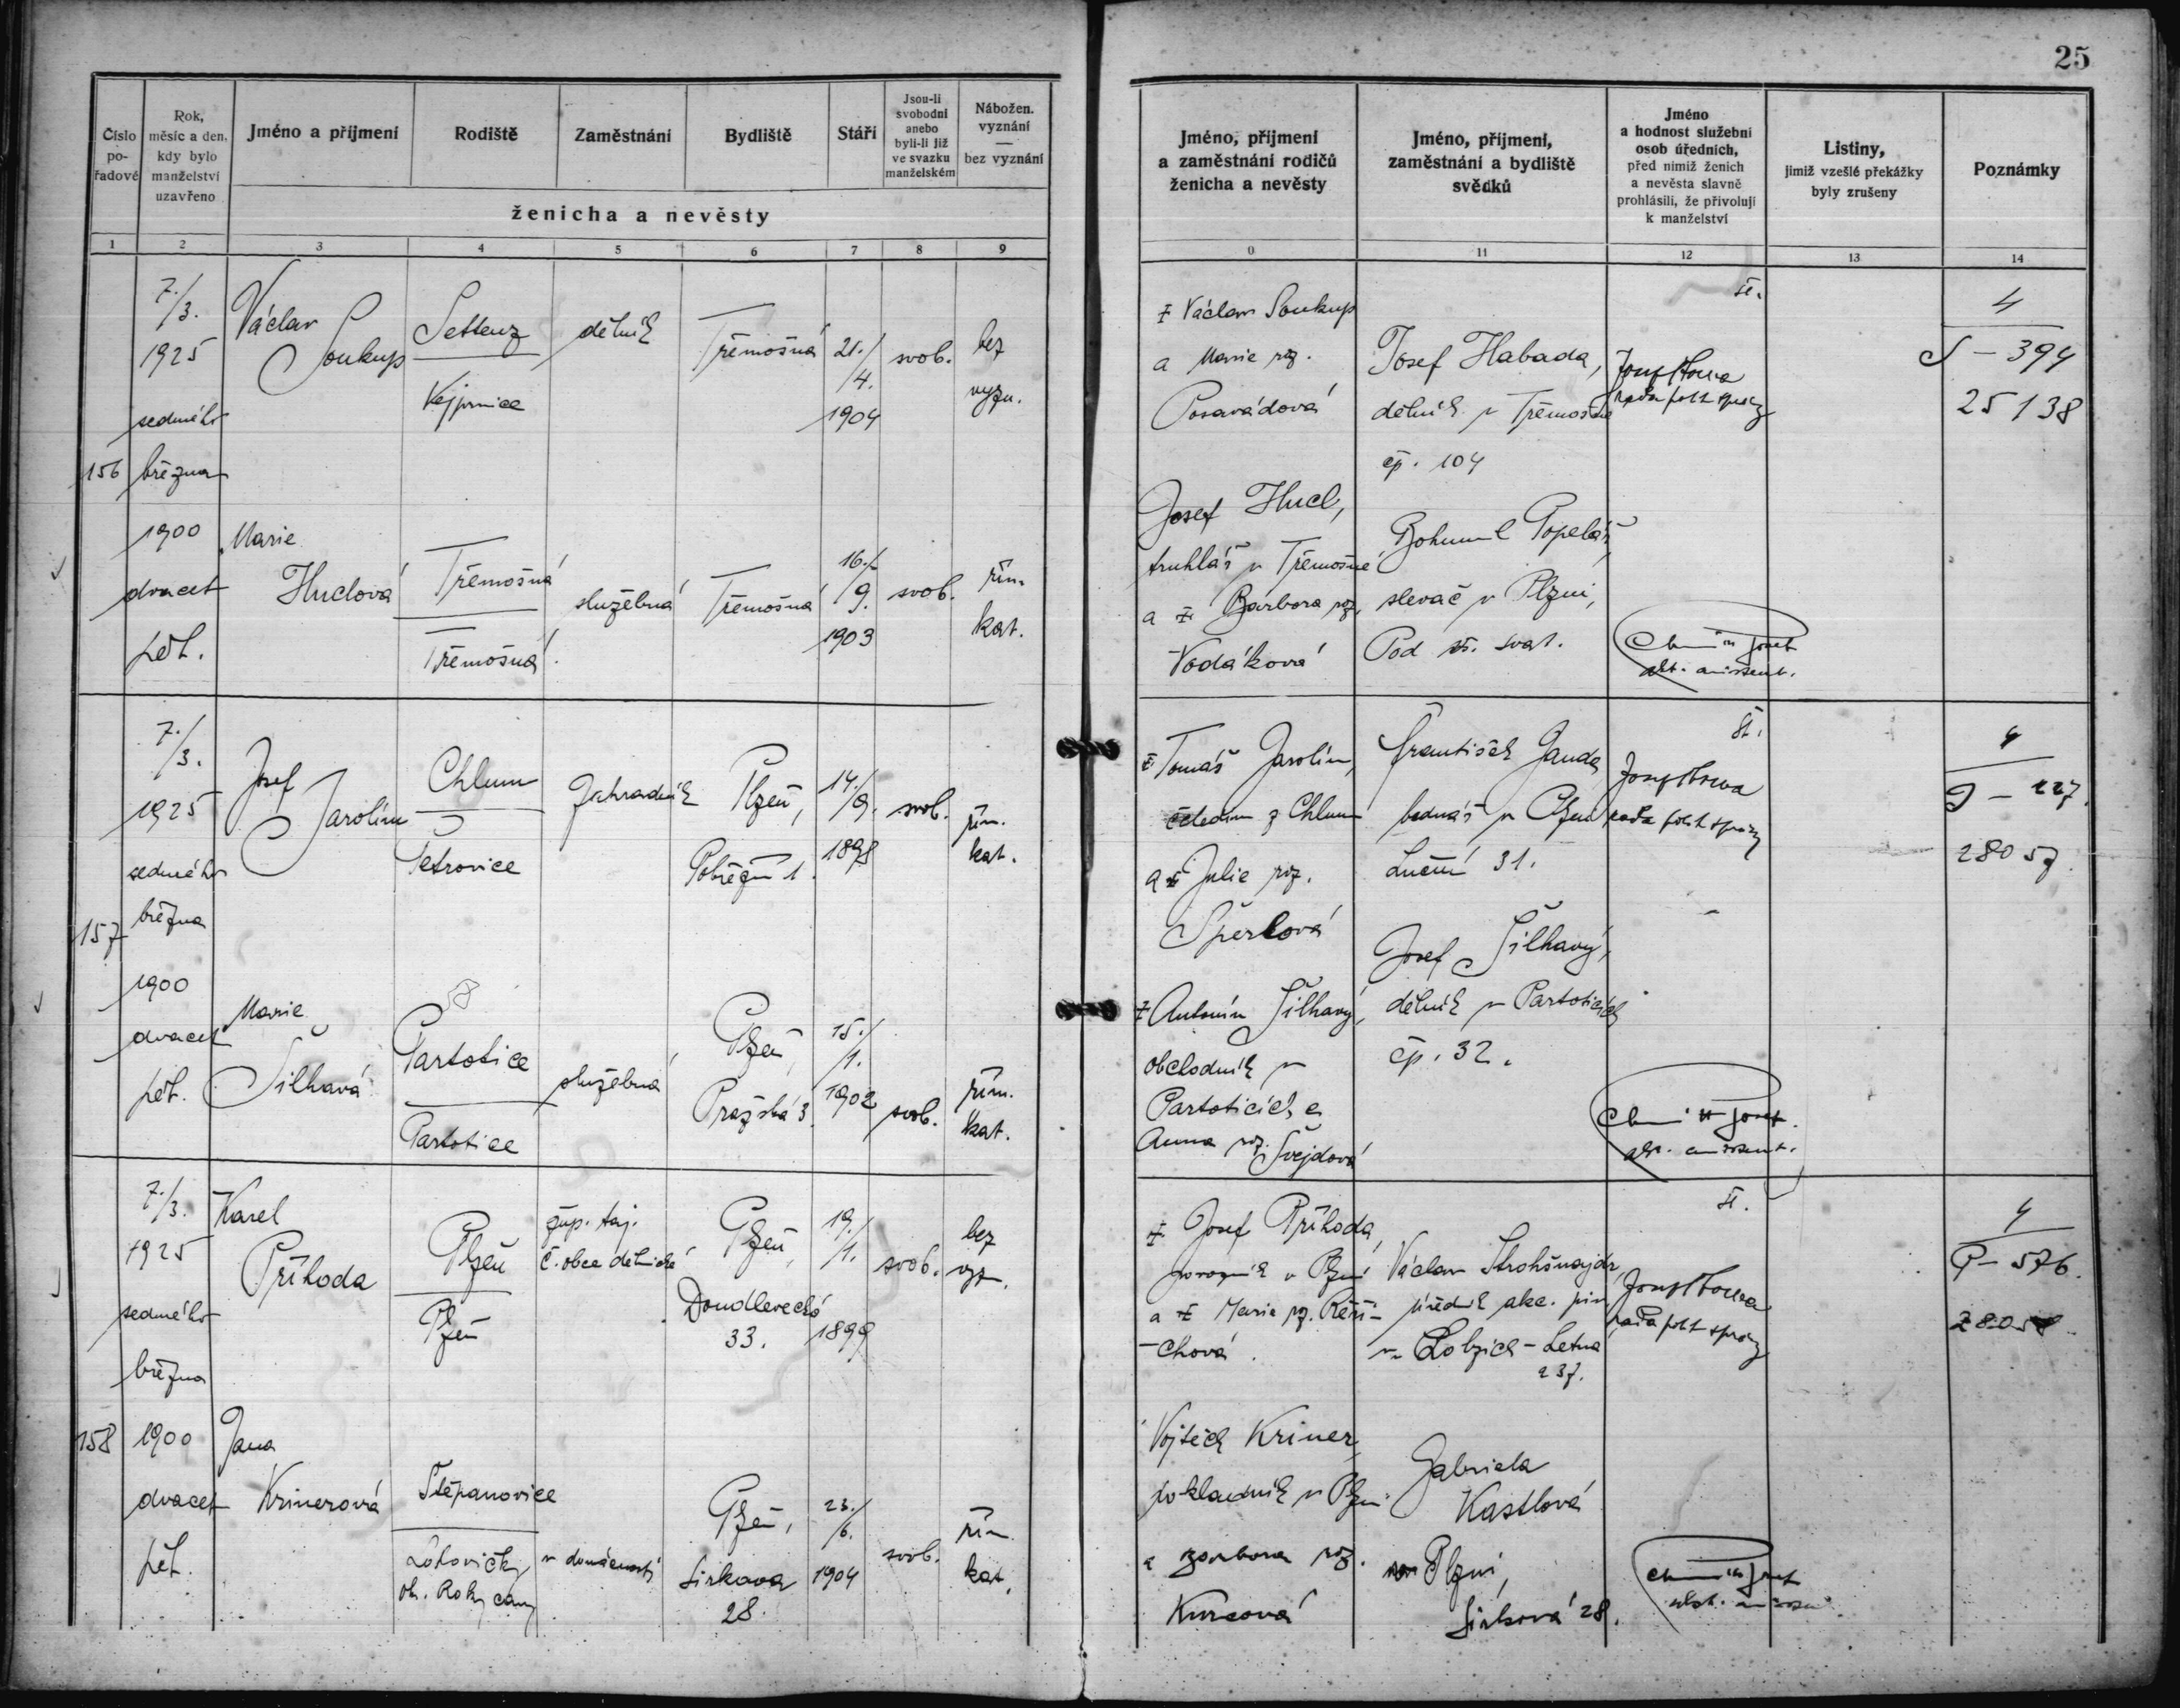 25
Číslo pořadové
Rok, měsíc a den, kdy bylo manželství uzavřeno
Jméno a příjmení
Rodiště
Zaměstnání
Bydliště
Stáří
Jsou-li svobodni anebo byli-li již ve svazku manželském
Nábožen. vyznání — bez vyznání
ženicha a nevěsty
Jméno, příjmení a zaměstnání rodičů ženicha a nevěsty
Jméno, příjmení, zaměstnání a bydliště svědků
Jméno a hodnost služební osob úředních, před nimiž ženich a nevěsta slavně prohlásili, že přivolují k manželství
Listiny, jimiž vzešlé překážky byly zrušeny
Poznámky
1 2 3 4 5 6 7 8 9 0 11 12 13 14
156
7./3.
1925
sedmého
března
1900
dvacet
pět.
Václav
Soukup
Settenz
Vejprnice
dělník
Třemošná
21./4.
1904
svob.
bez
vyzn.
Marie
Huclová
Třemošná
Třemošná
služebná
Třemošná
16./9.
1903
svob.
řím.
kat.
Václav Soukup
a Marie roz.
Posavádová
Josef Hucl,
truhlář v Třemošné
a Barbora roz.
Vodáková
Josef Habada,
dělník v Třemošné
čp. 104
Bohumil Popelář
slevač v Plzni,
Pod svat.
4
S – 394
25138
157
7./3.
1925
sedmého
března
1900
dvacet
pět.
Josef
Jarolím
Chlum
Petrovice
Zahradník
Plzeň,
Pobřežní 1.
14./9.
1898
svob.
řím.
kat.
Marie
Šilhavá
Partotice
Partotice
služebná
Plzeň,
Pražská 3.
15./1.
1902
svob.
řím.
kat.
Tomáš Jarolím,
čeledín z Chlumu
a Julie roz.
Šperlová
Antonín Šilhavý,
obchodník v
Partoticích a
Anna roz. Švejdová
František Janda
bednář v Plzni
Luční 31.
Josef Šilhavý,
dělník v Partoticích
čp. 32.
4
J – 227.
28057.
158
7./3.
1925
sedmého
března
1900
dvacet
pět.
Karel
Příhoda
Plzeň
Plzeň
žup. taj.
č. obce dělnické
Plzeň,
Doudlevecká
33.
19./1.
1899
svob.
bez
vyz.
Jana
Krinerová
Štěpanovice
Litohovičky
ok. Rokycany
v domácnosti
Plzeň,
Sirkova
28.
23./6.
1904
svob.
řím.
kat.
Josef Příhoda,
v Plzni
a Marie roz. Řeři-
-chová.
Vojtěch Kriner,
pokladník v Plzni
a Barbora roz.
Václav Strohšnajdr,
úředník akc. piv.
v Lobzích – Letná
237.
Gabriela
Kastlová
v Plzni,
Sirková 28.
4
P – 576.
28058